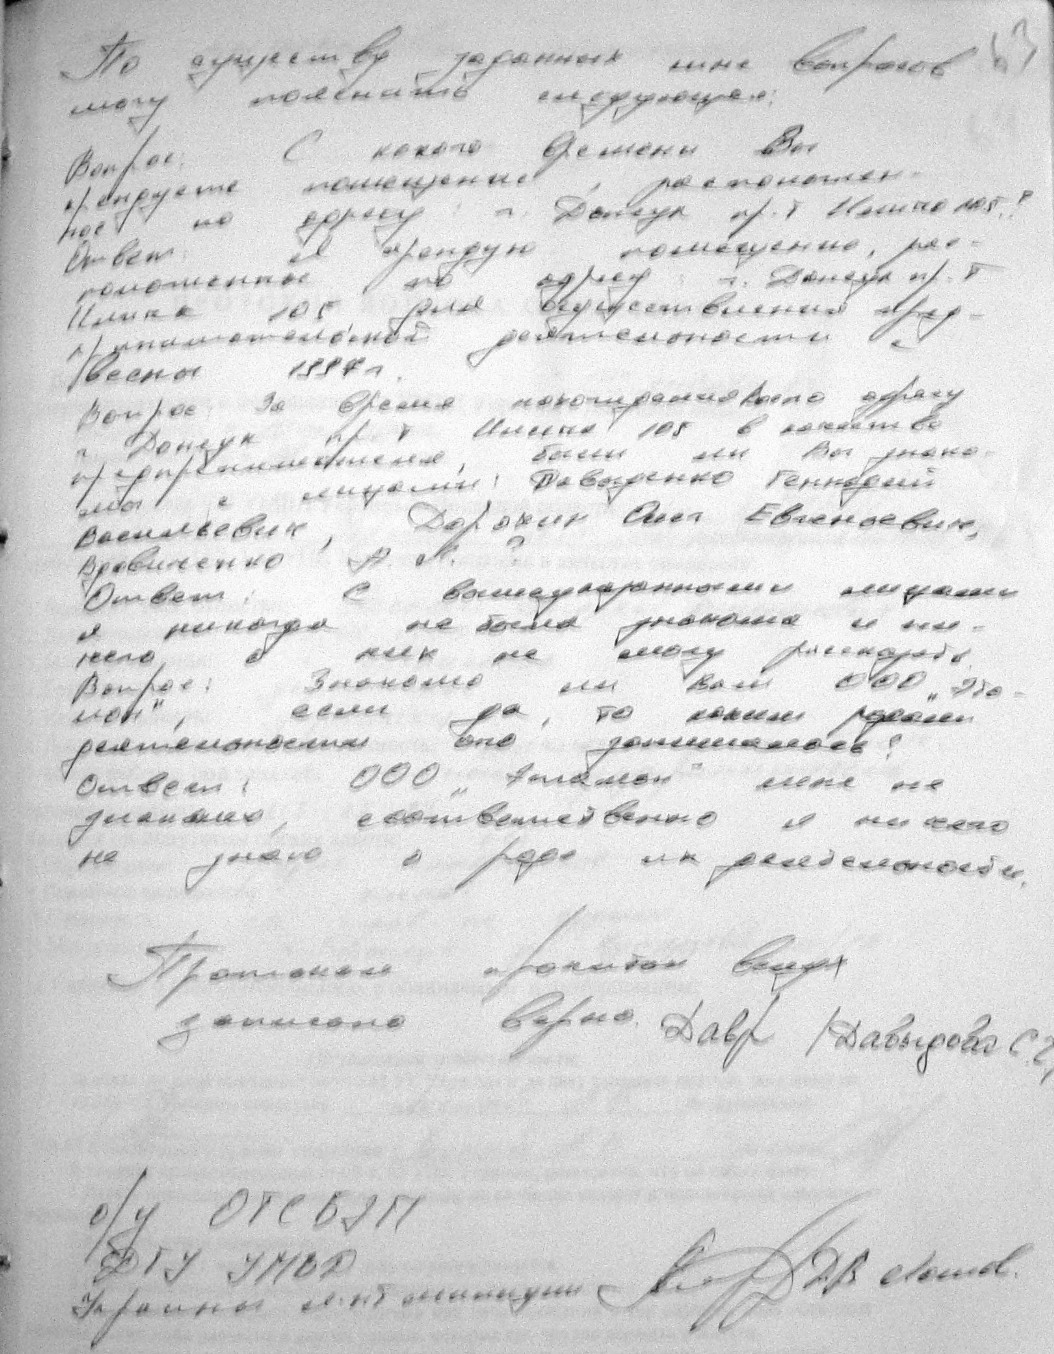 63
По существу заданных мне вопросов
могу пояснить следующее:
Вопрос: С какого времени Вы
арендуете помещение, расположен-
ное по адресу: г. Донецк пр-т Ильича 105?
Ответ: Я арендую помещение, рас-
положенное по адресу: г. Донецк пр-т
Ильича 105 для осуществления пред-
принимательской деятельности с
весны 1997 г.
Вопрос: За время нахождения Вас по адресу
г. Донецк пр-т Ильича 105 в качестве
предпринимателя, были ли Вы знако-
мы с лицами: Давыденко Геннадий
Васильевич, Дорохин Олег Евгеньевич,
Кравиченко А. М.?
Ответ: С вышеуказанными лицами
я никогда не была знакома и ни-
чего о них не могу рассказать.
Вопрос: Знакомо ли Вам ООО „Эта-
мон", если да, то каким родом
деятельности оно занималось?
Ответ: ООО „Этамон" мне не
знакомо, соответственно я ничего
не знаю о роде их деятельности.
Протокол прочитан вслух
записано верно. Давр /Давыдова С.
о/у ОГСБЭП
ДГУ УМВД
Украины л-нт милиции Д.В.